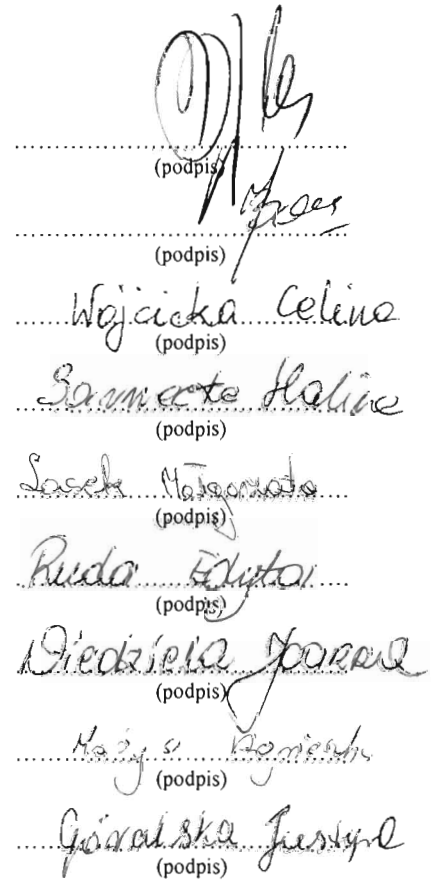 (podpis)
(podpis)
Wójcicka Celina
(podpis)
Halina
(podpis)
Łasek Małgorzata
(podpis)
Ruda Edyta
(podpis)
Niedziela Joanna
(podpis)
Agnieszka
(podpis)
Góralska Justyna
(podpis)